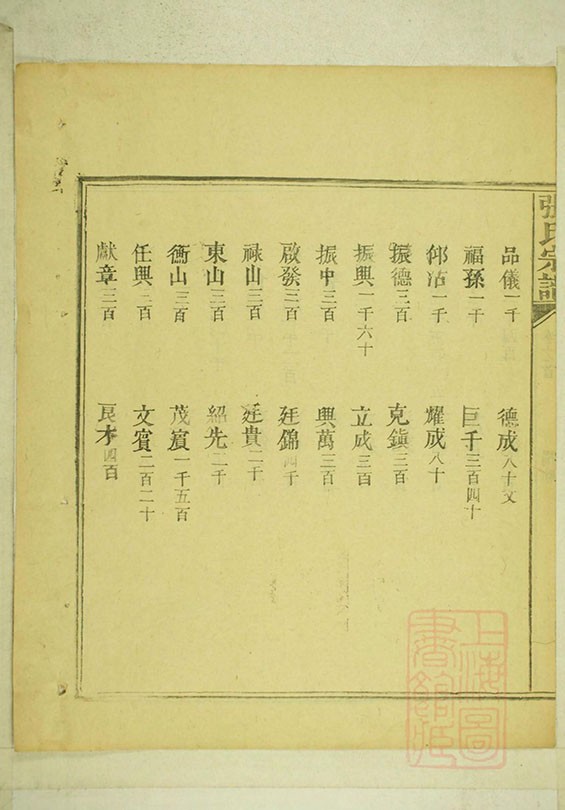 張氏宗譜
品儀一千 德成八十文
福孫一千 巨千三百四十
沾一千 耀成八十
振德三百 克鎮三百
振興一千六十 立成三百
振中三百 興萬三百
啟發三百 廷錦四千
祿山三百 廷貴二千
東山三百 紹先二千
衡山三百 茂賓一千五百
任興三百 文賓二百二十
獻章三百 良才四百
上海圖書館藏